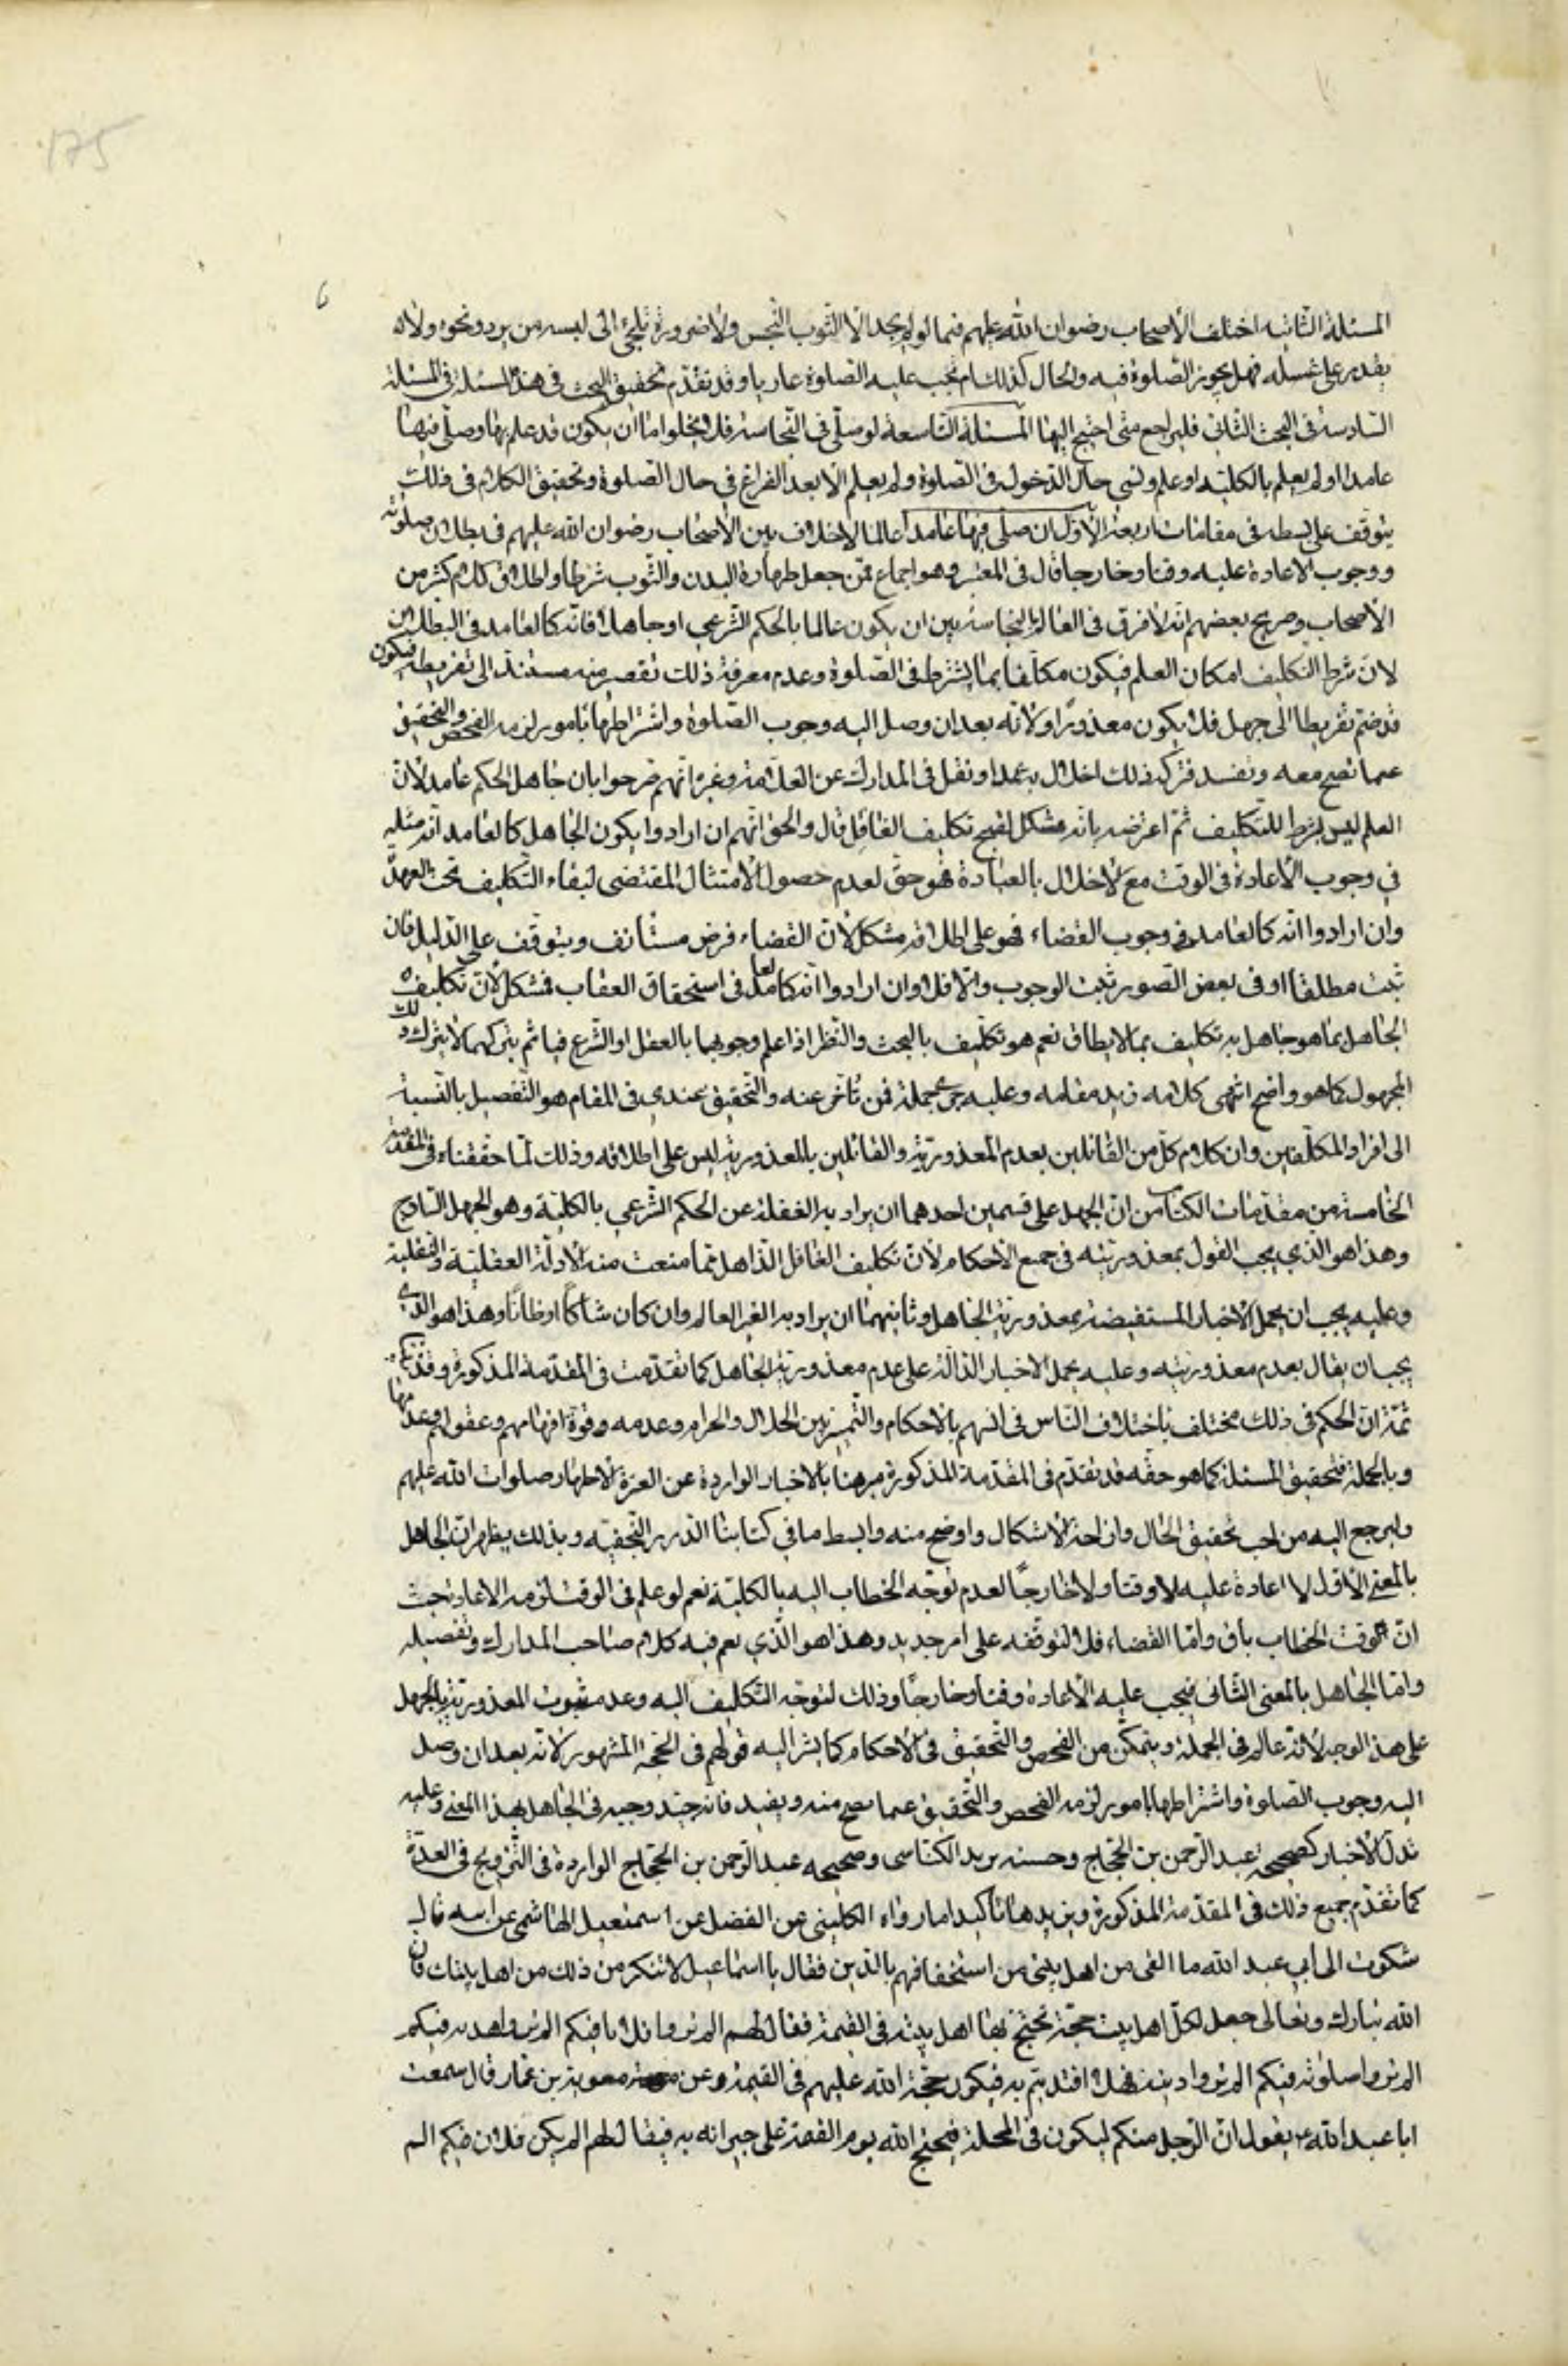 175
6
المسئلة الثانيه اختلف الأصحاب رضوان الله عليهم فيما لو لم يجد الا الثوب النجس ولا ضرورة تلجئ الى لبسه من برد ونحوه ولا له
يقدر على غسله فهل يجوز الصلوة فيه والحال كذلك ام تجب عليه الصلوة عاريا وقد تقدم تحقيق البحث في هذه المسئلة في المسئلة
السادسة في البحث الثاني فليراجع متى احتيج اليها المسئلة التاسعة لو صلى في النجاسة فلا يخلوا اما ان يكون قد علم بها وصلى فيها
عامدا او لم يعلم بالكليه او علم ونسى حال الدخول في الصلوة ولم يعلم الا بعد الفراغ في حال الصلوة وتحقيق الكلام في ذلك
يتوقف على بسطه في مقامات اربعة الأول ان صلى فيها عامدا عالما لا خلاف بين الأصحاب رضوان الله عليهم في بطلان صلوته
ووجوب الاعادة عليه وقتا وخارجا قال في المعتبر وهو اجماع ممن جعل طهارة البدن والثوب شرطا واطلاق كلام كثير من
الأصحاب وصريح بعضهم انه لا فرق في العالم بالنجاسة بين ان يكون عالما بالحكم الشرعي او جاهلا فانه كالعامد في البطلان
لان شرط التكليف امكان العلم فيكون مكلفا بما يشترط في الصلوة وعدم معرفة ذلك تقصير منه مستند الى تفريطه فيكون
قد ضم تفريطا الى جهل فلا يكون معذورا ولانه بعد ان وصل اليه وجوب الصلوة واشتراطها بامور لزمه الفحص والتحقيق
عما تصح معه وتفسد فتركه ذلك اخلال به عمدا ونقل في المدارك عن العلامة وغيره انهم صرحوا بان جاهل الحكم عامد لان
العلم ليس شرطا للتكليف ثم اعترضه بانه مشكل لقبح تكليف الغافل قال والحق انهم ان ارادوا بكون الجاهل كالعامد انه مثله
في وجوب الأعادة في الوقت مع الاخلال بالعبادة فهو حق لعدم حصول الامتثال المقتضى لبقاء التكليف تحت العهدة
وان ارادوا انه كالعامد في وجوب القضاء فهو على اطلاقه مشكل لان القضاء فرض مستانف ويتوقف على الدليل فان
ثبت مطلقا او في بعض الصور ثبت الوجوب والا فلا وان ارادوا انه كالعامد في استحقاق العقاب فمشكل لان تكليف
الجاهل بما هو جاهل به تكليف بما لا يطاق نعم هو تكليف بالبحث والنظر اذا علم وجوبهما بالعقل او الشرع فياثم بتركهما لا بترك ذلك
المجهول كما هو واضح انتهى كلامه زيد مقامه وعليه جرى جملة ممن تأخر عنه والتحقيق عندي في المقام هو التفصيل بالنسبة
الى افراد المكلفين وان كلام كل من القائلين بعدم المعذورية والقائلين بالمعذورية ليس على اطلاقه وذلك لما حققناه في المقدمة
الخامسة من مقدمات الكتاب من ان الجهل على قسمين احدهما ان يراد به الغفلة عن الحكم الشرعي بالكلية وهو الجهل الساذج
وهذا هو الذي يجب القول بمعذوريته في جميع الاحكام لان تكليف الغافل الذاهل مما منعت منه الأدلة العقلية والنقلية
وعليه يجب ان يحمل الأخبار المستفيضة بمعذورية الجاهل وثانيهما ان يراد به الغير العالم وان كان شاكا او ظانا وهذا هو الذي
يجب ان يقال بعدم معذوريته وعليه يحمل الاخبار الدالة على عدم معذورية الجاهل كما تقدمت في المقدمة المذكورة وقد
ثمة ان الحكم في ذلك مختلف باختلاف الناس في انسهم بالاحكام والتمييز بين الحلال والحرام وعدمه وقوة افهامهم وعقولهم وعدمها
وبالجملة فتحقيق المسئلة كما هو حقه قد تقدم في المقدمة المذكورة مبرهنا بالاخبار الواردة عن العترة الاطهار صلوات الله عليهم
وليرجع اليه من احب تحقيق الحال وازاحة الاشكال واوضح منه وابسط ما في كتابنا الدرر النجفيه وبذلك يظهر ان الجاهل
بالمعنى الأول لا اعادة عليه لا وقتا ولا خارجا لعدم توجه الخطاب اليه بالكلية نعم لو علم في الوقت لزمه الاعادة حيث
ان وقت الخطاب باق واما القضاء فلا لتوقفه على امر جديد وهذا هو الذي يعم فيه كلام صاحب المدارك وتفصيله
واما الجاهل بالمعنى الثاني فيجب عليه الأعادة وقتا وخارجا وذلك لتوجه التكليف اليه وعدم ثبوت المعذورية بالجهل
على هذا الوجه لانه عالم في الجملة ويتمكن من الفحص والتحقيق في الأحكام كما يشير اليه قولهم في الحجة المشهور لانه بعد ان وصل
اليه وجوب الصلوة واشتراطها بامور لزمه الفحص والتحقيق عما يصح منه ويفيد فانه جيد وجيه في الجاهل بهذا المعنى وعليه
تدل الأخبار كصحيحه عبد الرحمن بن الحجاج وحسنه بريد الكناسى وصحيحه عبد الرحمن بن الحجاج الواردة في التزويج في العدة
كما تقدم جميع ذلك في المقدمة المذكورة ويزيدها تاكيدا ما رواه الكليني عن الفضل عن اسمعيل الهاشمى عن ابيه قال
شكوت الى أبي عبد الله ما القى من اهل بيتى من استخفافهم بالدين فقال يا اسماعيل لا تنكر من ذلك من اهل بيتك فان
الله تبارك وتعالى جعل لكل اهل بيت حجة تحتج بها اهل بيته في القيمة فقال لهم الم تروا فلانا فيكم الم تروا هديه فيكم
الم تروا صلوته فيكم الم تروا دينه فهلا اقتديتم به فيكون حجة الله عليهم في القيمة وعن معوية بن عمار قال سمعت
ابا عبد الله ع يقول ان الرجل منكم ليكون في المحلة فيحتج الله يوم القيمة على جيرانه به فيقال لهم الم يكن فلان فيكم الم